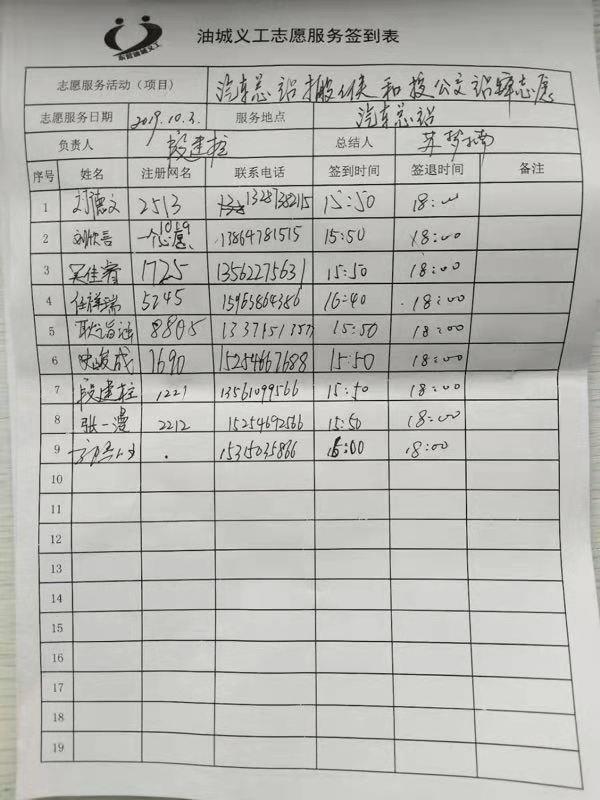 东营油城义工
油城义工志愿服务签到表
志愿服务活动（项目） 汽车总站搬 和 公交站 志愿
志愿服务日期 2019.10.3. 服务地点 汽车总站
负责人 段建柱 总结人 苏梦楠
序号 姓名 注册网名 联系电话 签到时间 签退时间 备注
1 刘德文 2513 13287382115 15:50 18:00
2 刘欣言 1059 一个心愿 13864781515 15:50 18:00
3 吴佳睿 1725 13562275631 15:50 18:00
4 任祥瑞 5245 15965864386 16:40 18:00
5 8805 15:50 18:00
6 1690 15254667688 15:50 18:00
7 段建柱 1221 13561099566 15:50 18:00
8 张一漫 2212 15254692566 15:50 18:00
9 15315035866 16:00 18:00
10
11
12
13
14
15
16
17
18
19